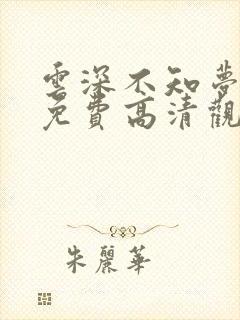 雲深不知夢
免費高清觀
朱麗華